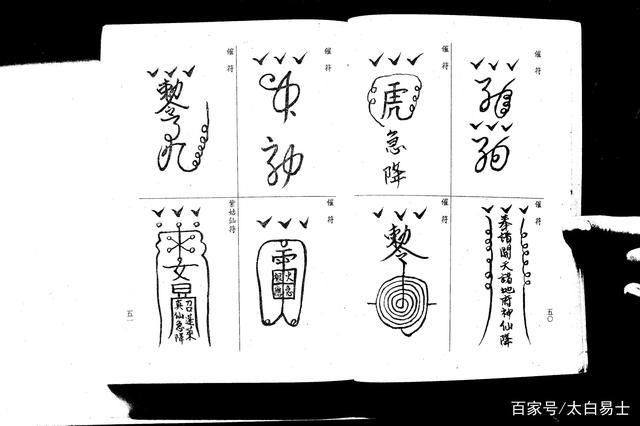 催符
催符
虎
急降
催符
奉請開天諸地府神仙降
催符
勅令
五〇
催符
催符
勅令
催符
火急
紫姑仙符
女
召蓬萊
真仙急降
五一
百家号/太白易士